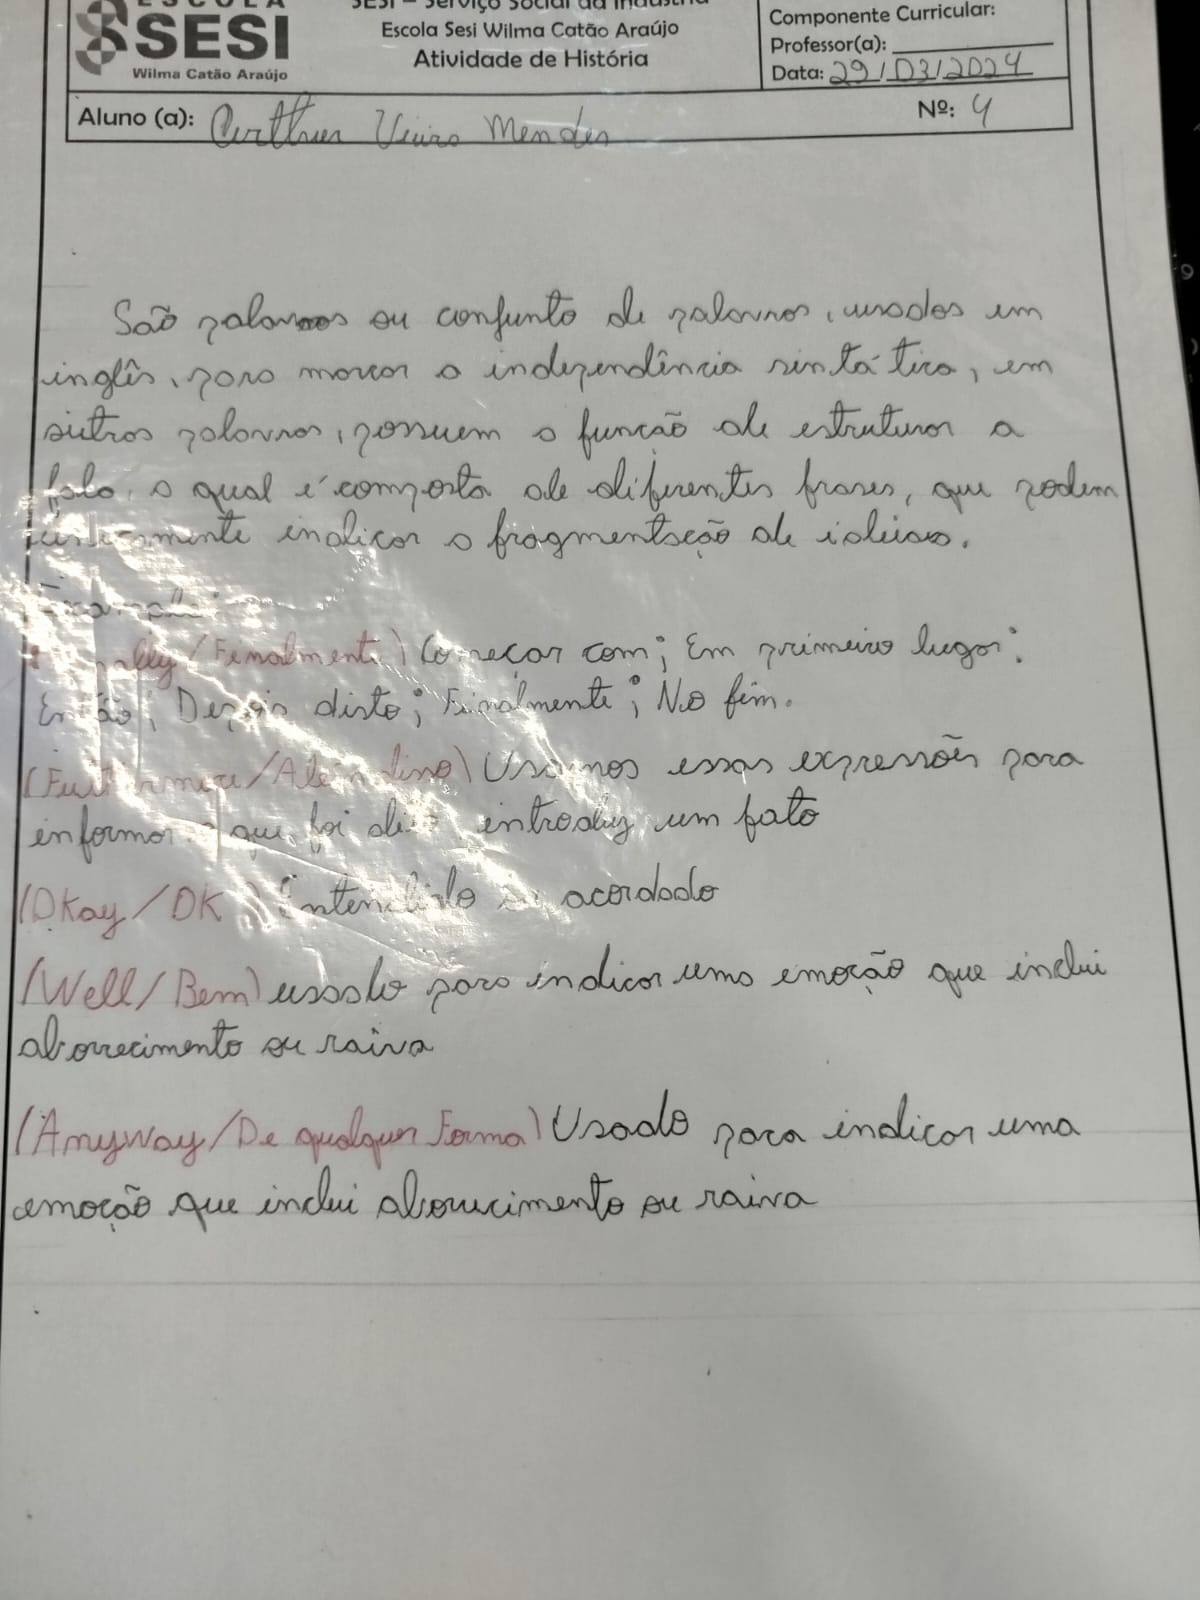 ESCOLA
SESI
Wilma Catão Araújo
SESI – Serviço Social da Indústria
Escola Sesi Wilma Catão Araújo
Atividade de História
Componente Curricular:
Professor(a):
Data: 29/03/2024
Aluno (a): Arthur Vieira Mendes
Nº: 4
São palavras ou conjunto de palavras, usados em
inglês, para marcar a independência sintática, em
outros palavras, possuem a função de estruturar a
fala, a qual é composta de diferentes frases, que podem
indicar a fragmentação de ideias.
Exemplo:
(Finally/Finalmente) Começar com; Em primeiro lugar:
Então; Depois disto; Finalmente; No fim.
(Furthermore/Além disso) Usamos essas expressões para
informar que foi introduz um fato
(Okay/OK) Entendido ou acordado
(Well/Bem) usado para indicar uma emoção que inclui
aborrecimento ou raiva
(Anyway/De qualquer Forma) Usado para indicar uma
emoção que inclui aborrecimento ou raiva